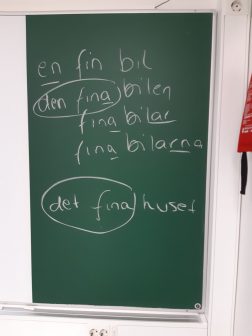 en fin bil
den fina bilen
fina bilar
fina bilarna
det fina huset